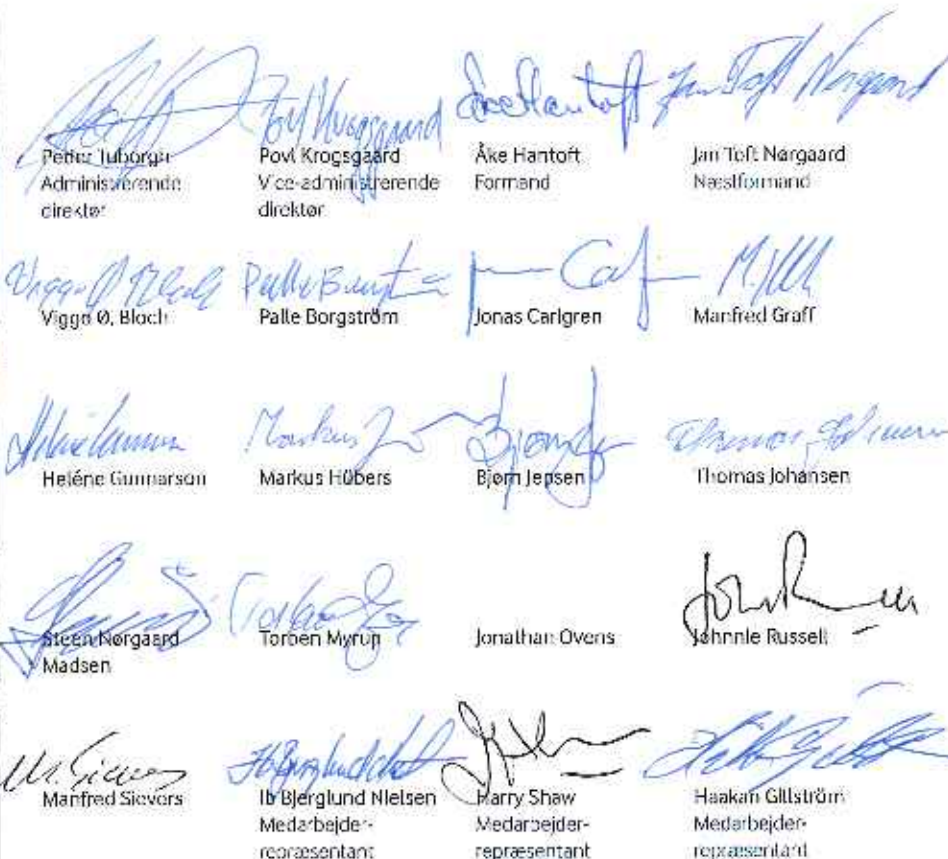 Peder Tuborgh
Administrerende
direktør
Povl Krogsgaard
Vice-administrerende
direktør
Åke Hantoft
Formand
Jan Toft Nørgaard
Næstformand
Viggo Ø. Bloch
Palle Borgström
Jonas Carlgren
Manfred Graff
Heléne Gunnarson
Markus Hübers
Bjørn Jepsen
Thomas Johansen
Steen Nørgaard
Madsen
Torben Myrup
Jonathan Ovens
Johnnie Russell
Manfred Sievers
Ib Bjerglund Nielsen
Medarbejder-
repræsentant
Harry Shaw
Medarbejder-
repræsentant
Haakan Gillström
Medarbejder-
repræsentant